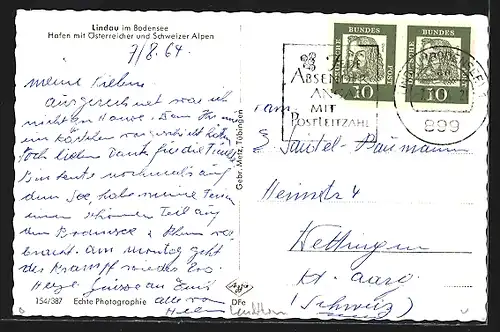 Lindau im Bodensee
Hafen mit Österreicher und Schweizer Alpen
7/8.64.
meine Lieben.
ausgerechnet war ich
nicht zu Hause.
ein Kärtchen
doch lieben Dank für die
Bin heute nochmals auf
dem See, habe meine Ferien
einen schönen Teil auf
dem Bodensee & Rhein ver-
bracht. am Montag geht
der Krampf wieder los.
Herzl. Grüsse an Euch
alle von
154/387 Echte Photographie
Gebr. Metz, Tübingen
DFe
DEUTSCHE BUNDESPOST
10
DEUTSCHE BUNDESPOST
10
ABSENDER-
ANGABE
MIT
POSTLEITZAHL
899
Heimstr 4
Wettingen
Kt. Aarg
(Schweiz)